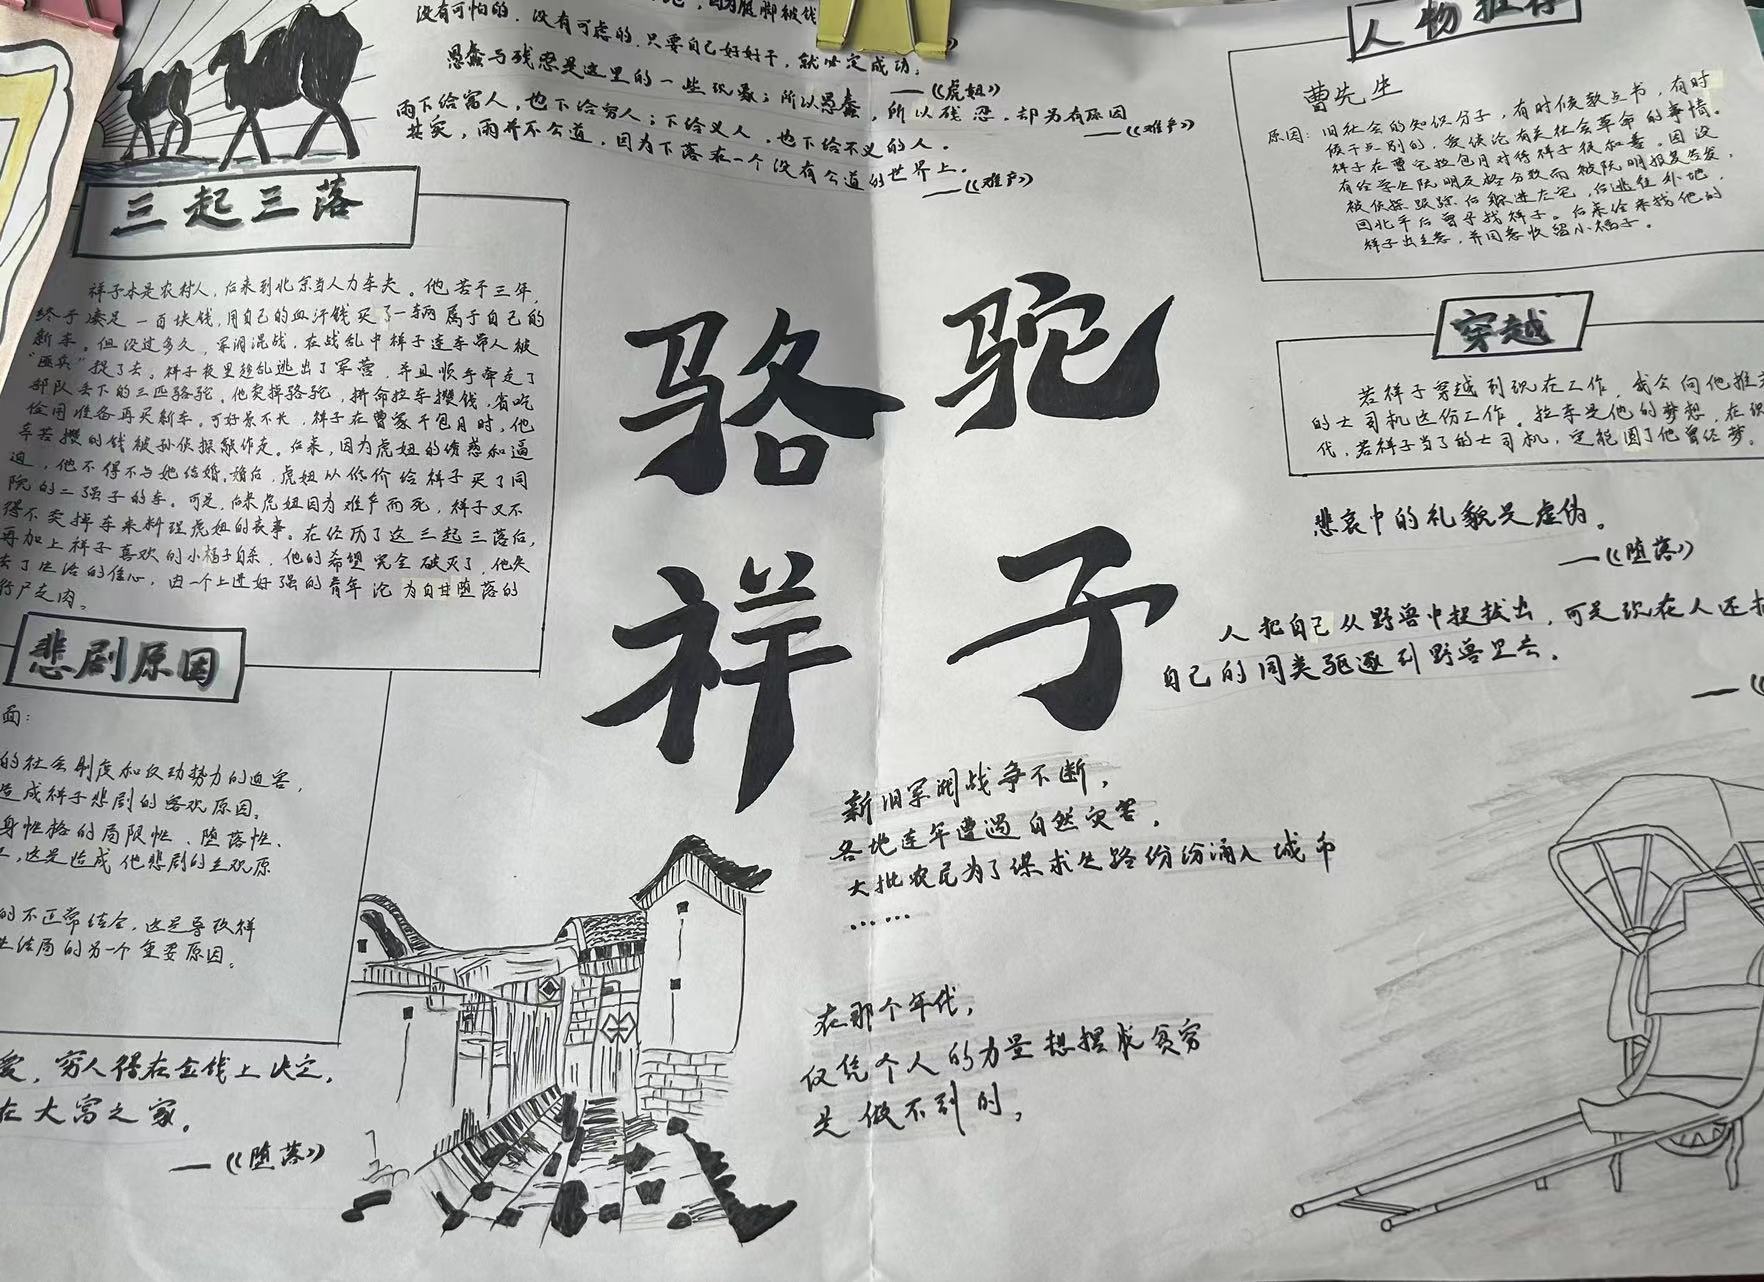 没有可怕的，没有可虑的，只要自己好好干，就必定成功。
——《虎妞》
愚蠢与残忍是这里的一些现象；所以愚蠢，所以残忍，却另有原因
——《难产》
雨下给富人，也下给穷人；下给义人，也下给不义的人。
其实，雨并不公道，因为下落在一个没有公道的世界上。
——《难产》
三起三落
祥子本是农村人，后来到北京当人力车夫。他苦干三年，
终于凑足一百块钱，用自己的血汗钱买了一辆属于自己的
新车。但没过多久，军阀混战，在战乱中祥子连车带人被
“匪兵”捉了去。祥子夜里趁乱逃出了军营，并且顺手牵走了
部队丢下的三匹骆驼。他卖掉骆驼，拼命拉车攒钱，省吃
俭用准备再买新车。可好景不长，祥子在曹家干包月时，他
辛苦攒的钱被孙侦探敲诈走。后来，因为虎妞的诱惑和逼
迫，他不得不与她结婚。婚后，虎妞以低价给祥子买了同
院的二强子的车。可是，后来虎妞因为难产而死，祥子又不
得不卖掉车来料理虎妞的丧事。在经历了这三起三落后，
再加上祥子喜欢的小福子自杀，他的希望完全破灭了，他失
去了生活的信心，由一个上进好强的青年沦为自甘堕落的
行尸走肉。
悲剧原因
面：
的社会制度和反动势力的迫害，
造成祥子悲剧的客观原因。
身性格的局限性、堕落性、
，这是造成他悲剧的主观原
的不正常结合，这是导致祥
结局的另一个重要原因。
爱，穷人得在金钱上决定，
在大富之家。
——《堕落》
骆驼
祥子
人物推荐
曹先生
原因：旧社会的知识分子，有时候教点书，有时
候干点别的，爱谈论有关社会革命的事情。
祥子在曹宅拉包月对待祥子很和善。因没
有给学生阮明及格分数而被阮明报复告发，
被侦探跟踪后躲进左宅，后逃往外地，
回北平后曾寻找祥子。后来给来找他的
祥子出主意，并同意收留小福子。
穿越
若祥子穿越到现在工作，我会向他推
的士司机这份工作。拉车是他的梦想，在现
代，若祥子当了的士司机，定能圆了他曾经梦。
悲哀中的礼貌是虚伪。
——《堕落》
人把自己从野兽中提拔出，可是现在人还把
自己的同类驱逐到野兽里去。
新旧军阀战争不断，
各地连年遭遇自然灾害，
大批农民为了谋求生路纷纷涌入城市
……
在那个年代，
仅凭个人的力量想摆脱贫穷
是做不到的，